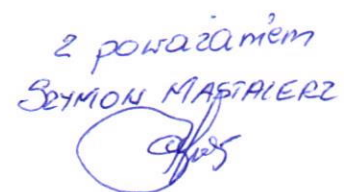 Z poważaniem
SZYMON MASTALERZ